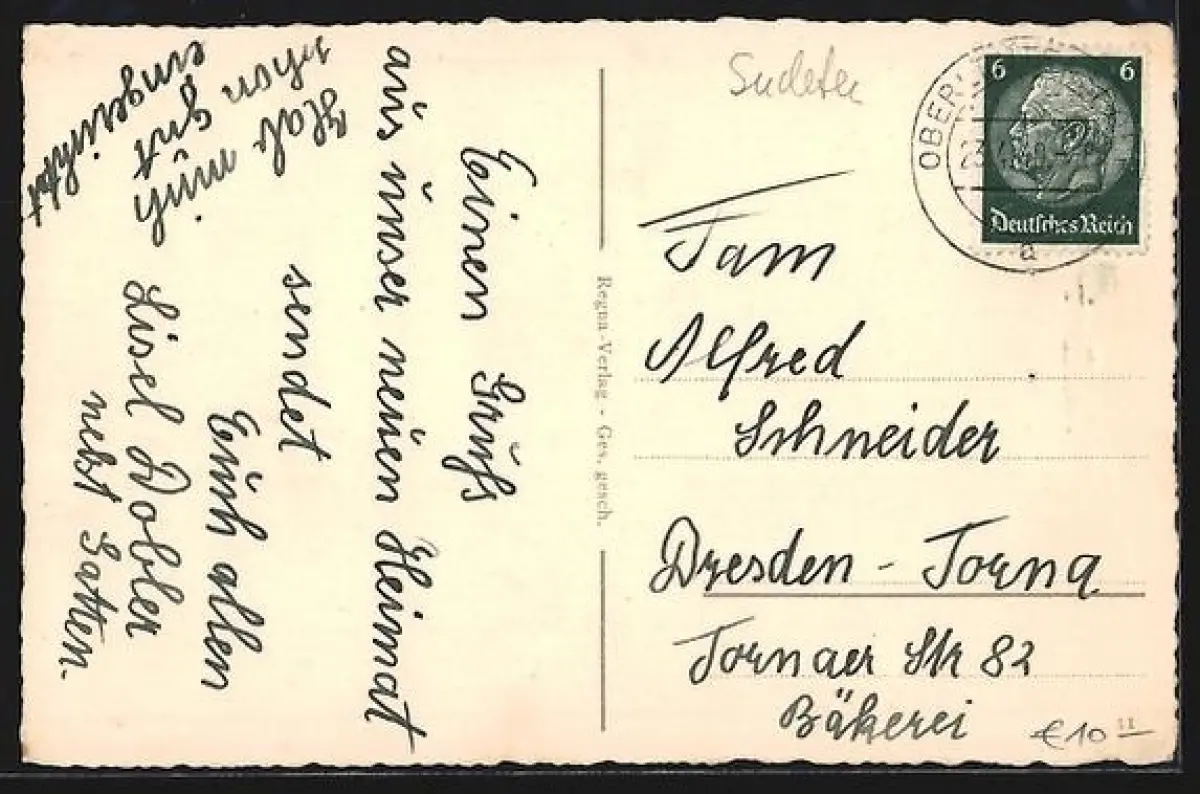 Einen Gruß
aus unser neuen Heimat
sendet
Euch allen
Lisel Dobler
nebst Gatten.
Hab mich
schon gut
eingericht
Regna-Verlag - Ges. gesch.
Sudeten
OBER
6 6
Deutsches Reich
a
Fam
Alfred
Schneider
Dresden - Torna
Tornaer Str 82
Bäkerei
€10